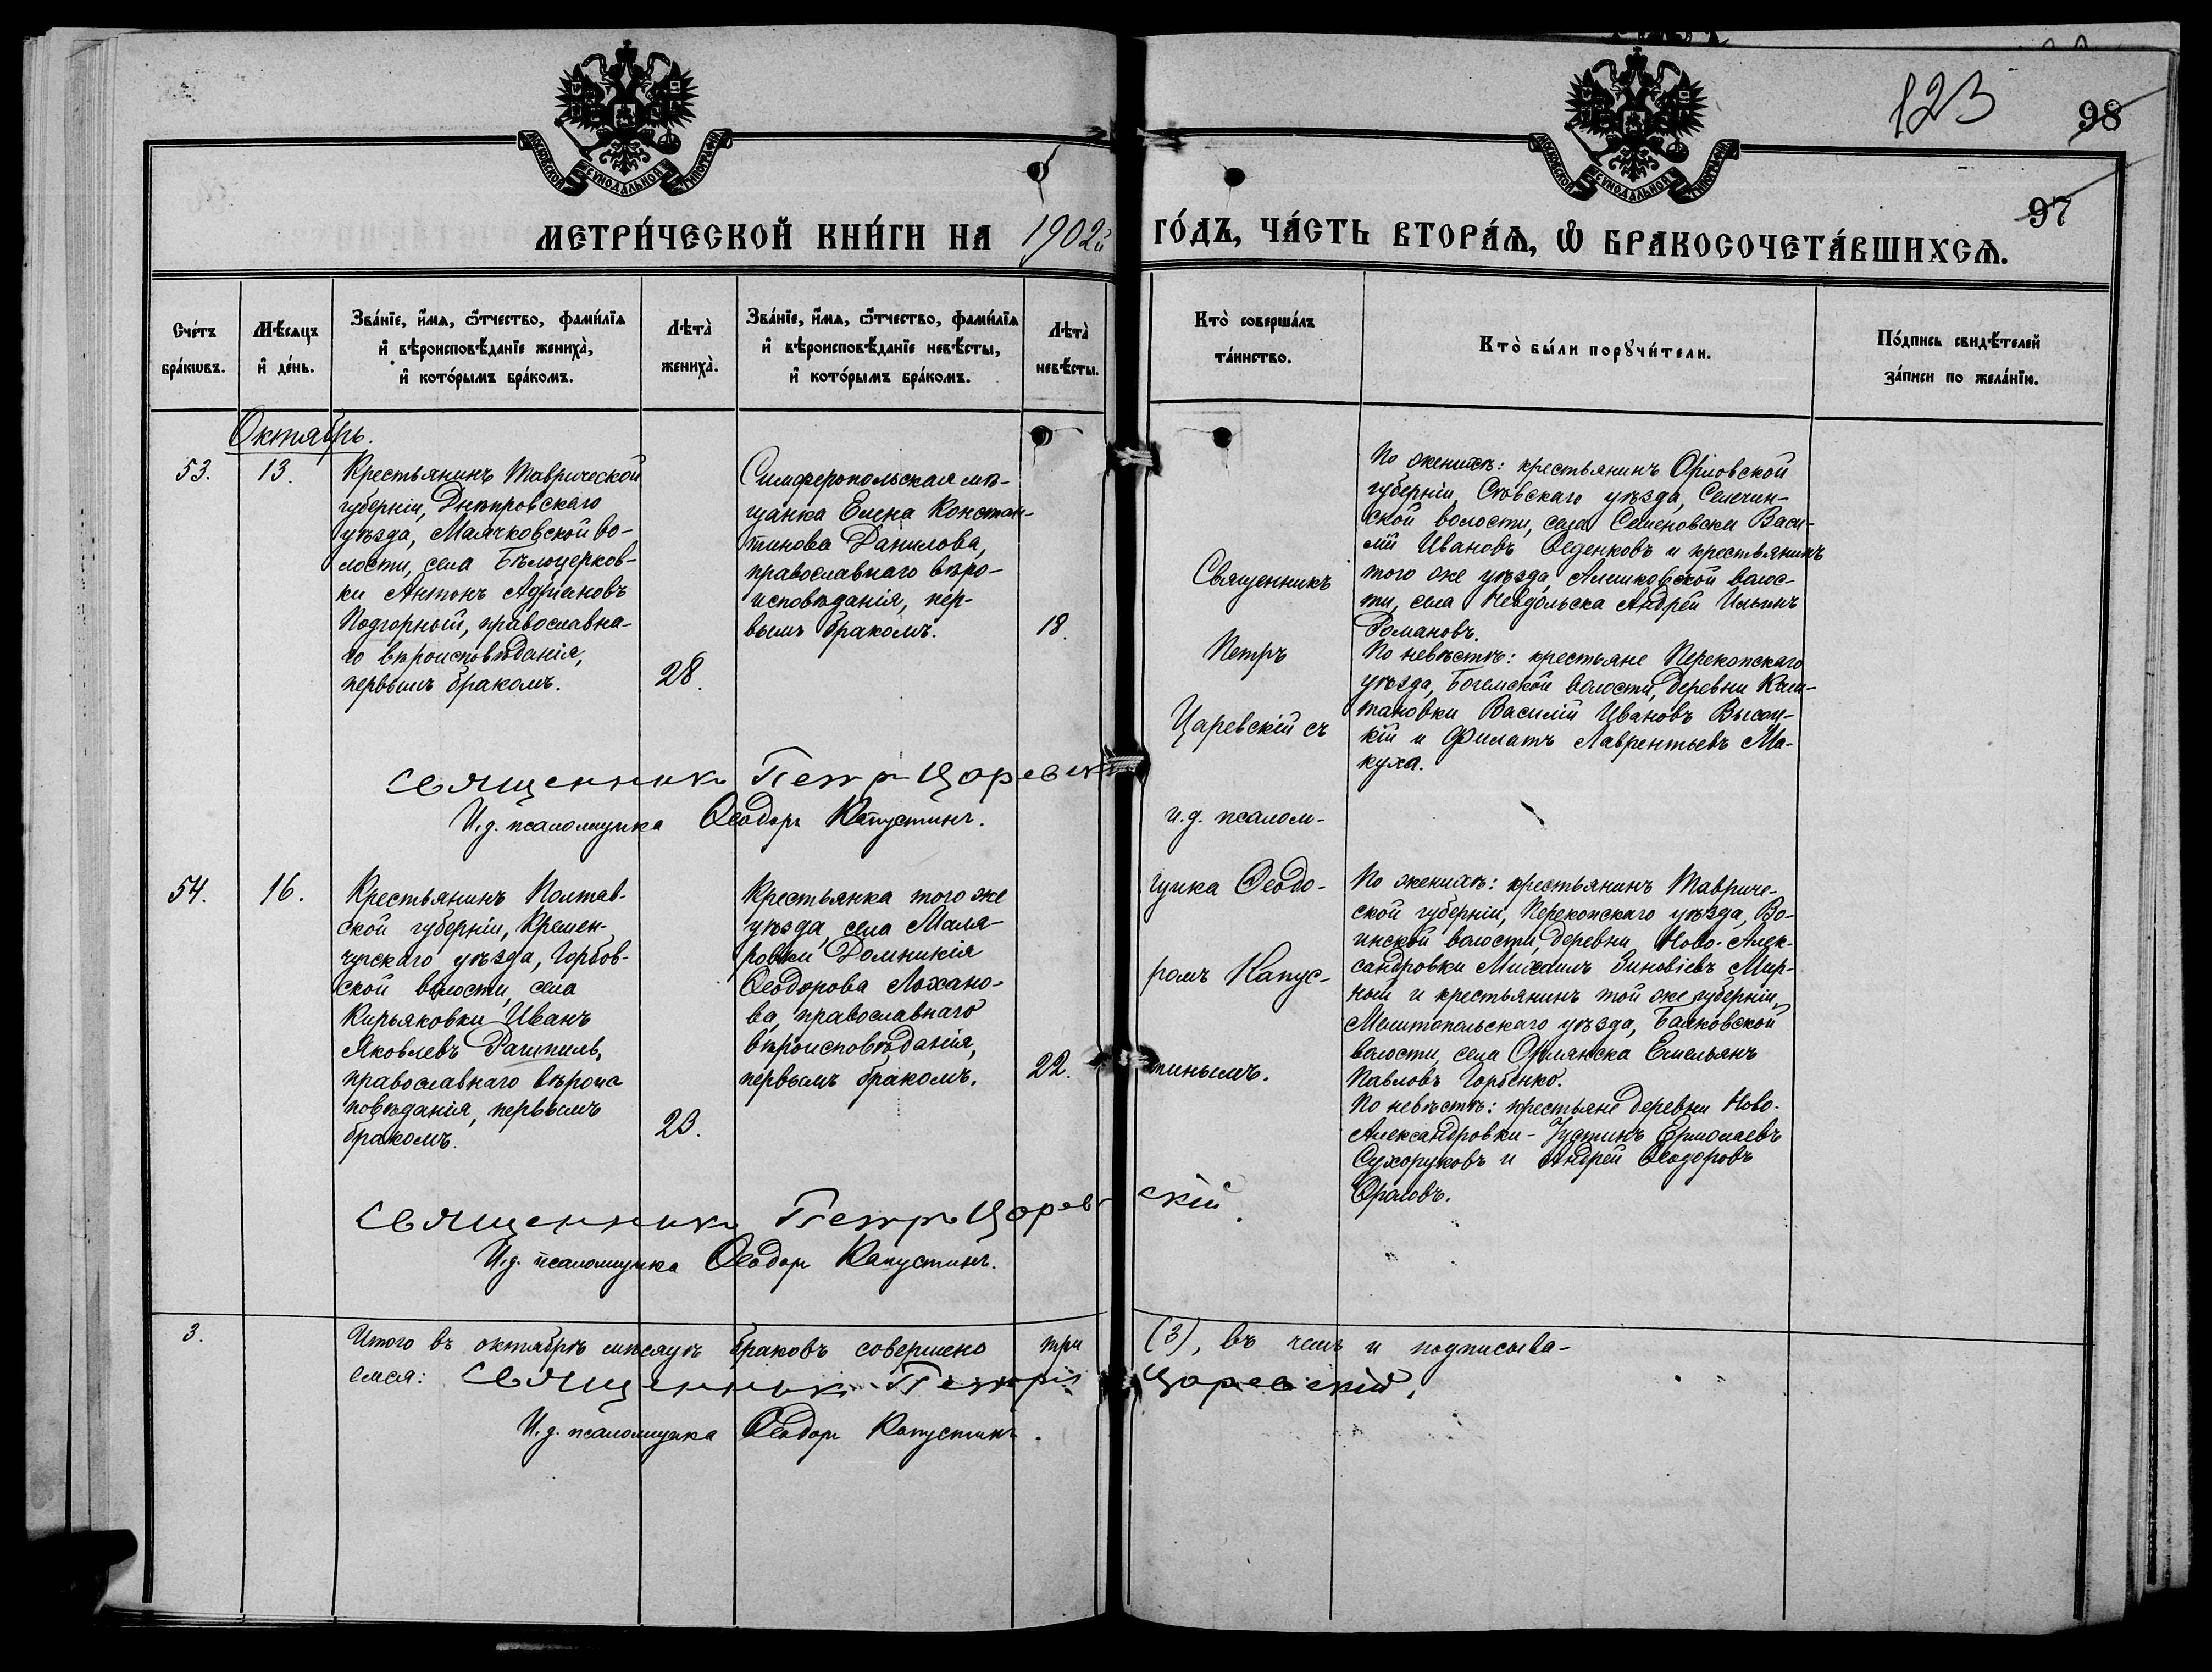 123
98
97
МОСКОВСКОЙ СѴНОДАЛЬНОЙ ТИПОГРАФІИ
МОСКОВСКОЙ СѴНОДАЛЬНОЙ ТИПОГРАФІИ
МЕТРИ́ЧЕСКОЙ КНИ́ГИ НА 1902й ГО́ДЪ, ЧА́СТЬ ВТОРА́Ѧ, Ѽ БРАКОСОЧЕТА́ВШИХСѦ.
Сче́тъ
бра́кѡвъ.
Мѣ́сяцъ
и҆ де́нь.
Зва́нїе, и҆́мѧ, ѻ҆́тчество, фами́лїѧ
и҆ вѣроисповѣ́данїе жениха̀,
и҆ кото́рымъ бра́комъ.
Лѣта̀
жениха̀.
Зва́нїе, и҆́мѧ, ѻ҆́тчество, фами́лїѧ
и҆ вѣроисповѣ́данїе невѣ́сты,
и҆ кото́рымъ бра́комъ.
Лѣта̀
невѣ́сты.
Кто̀ соверша́лъ
та́инство.
Кто̀ бы́ли порꙋчи́тели.
По́дпись свидѣ́телей
за́писи по жела́нїю.
Октябрь.
53.
13.
Крестьянинъ Таврической
губерніи, Днѣпровскаго
уѣзда, Маячковской во-
лости, села Бѣлоцерков-
ки Антонъ Адріановъ
Подгорный, православна-
го вѣроисповѣданія,
первымъ бракомъ.
28.
Симферопольская мѣ-
щанка Елена Констан-
тинова Данилова,
православнаго вѣро-
исповѣданія, пер-
вымъ бракомъ.
18.
Священникъ
Петръ
Царевскій съ
и.д. псалом-
щика Ѳеодо-
ромъ Капус-
тинымъ.
По женихѣ: крестьянинъ Орловской
губерніи, Сѣвскаго уѣзда, Селечин-
ской волости, села Семеновска Васи-
лій Ивановъ Ѳеденковъ и крестьянинъ
того же уѣзда, Алешковской волос-
ти, села Невдольска Андрей Ильинъ
Романовъ.
По невѣстѣ: крестьяне Перекопскаго
уѣзда, Богемской волости, деревни Каш-
тановки Василій Ивановъ Высоц-
кій и Филатъ Лаврентьевъ Ма-
куха.
Священникъ Петръ Царевскі
И.д. псаломщика Ѳеодоръ Капустинъ.
54.
16.
Крестьянинъ Полтав-
ской губерніи, Кремен-
чугскаго уѣзда, Горбов-
ской волости, села
Кирьяковки Иванъ
Яковлевъ Рашпиль,
православнаго вѣроис
повѣданія, первымъ
бракомъ.
23.
Крестьянка того же
уѣзда, села Маля-
ровки Домникія
Ѳеодорова Лохано-
ва, православнаго
вѣроисповѣданія,
первымъ бракомъ.
22.
По женихѣ: крестьянинъ Тавриче-
ской губерніи, Перекопскаго уѣзда, Во-
инской волости, деревни Ново-Алек-
сандровки Михаилъ Зиновіевъ Мир-
ный и крестьянинъ той же губерніи,
Мелитопольскаго уѣзда, Балковской
волости, села Орлянска Емельянъ
Павловъ Горбенко.
По невѣстѣ: крестьяне деревни Ново-
Александровки - Густинъ Ермолаевъ
Сухоруковъ и Андрей Ѳеодоровъ
Фроловъ.
Священникъ Петръ Царевскій.
И.д. псаломщика Ѳеодоръ Капустинъ.
3.
Итого въ октябрѣ мѣсяцѣ браковъ совершено три (3), въ чемъ и подписыва-
емся: Священникъ Петръ Царевскій.
И.д. псаломщика Ѳеодоръ Капустинъ.